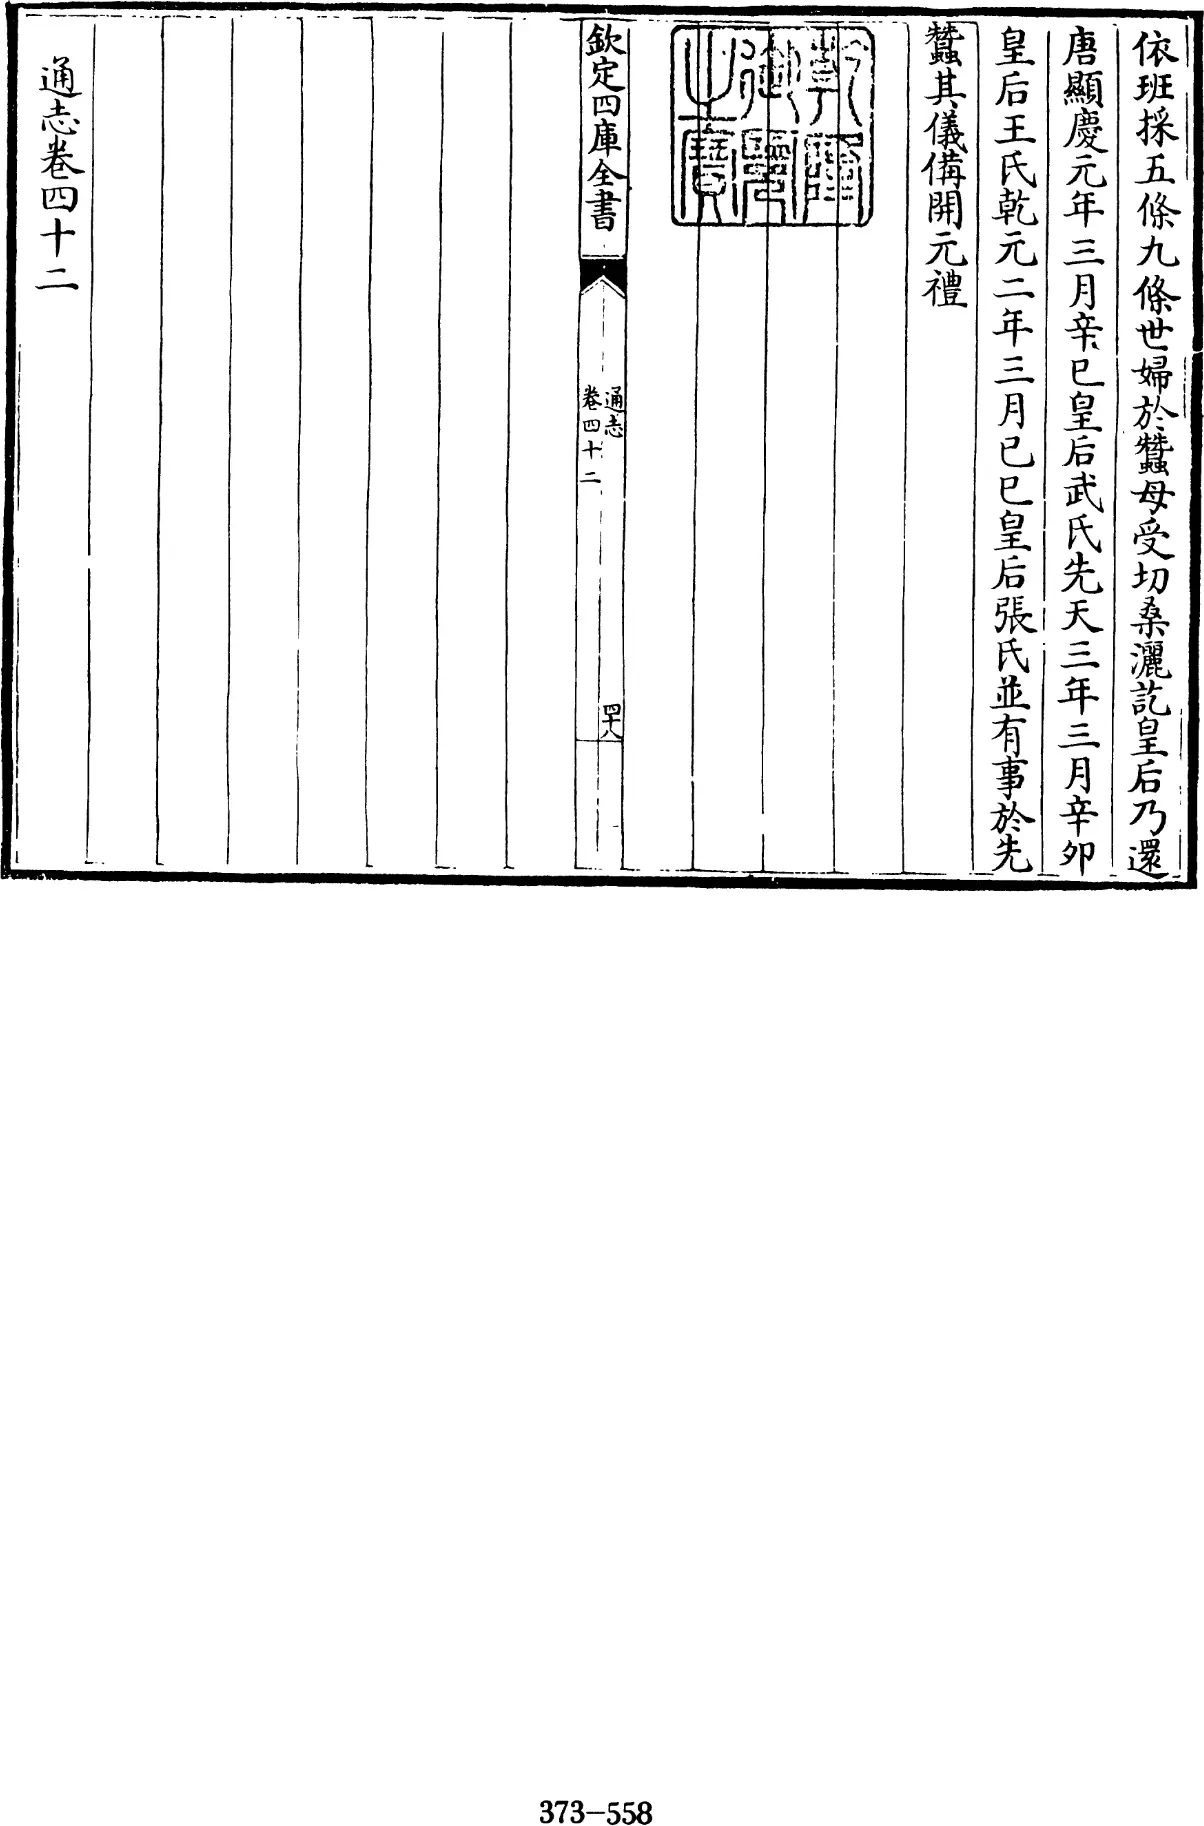 依班採五條九條世婦於蠶母受切桑灑訖皇后乃還
唐顯慶元年三月辛巳皇后武氏先天三年三月辛卯
皇后王氏乾元二年三月己巳皇后張氏並有事於先
蠶其儀備開元禮
乾隆御覽之寶
欽定四庫全書
通志
卷四十二
四十八
通志卷四十二
373-558